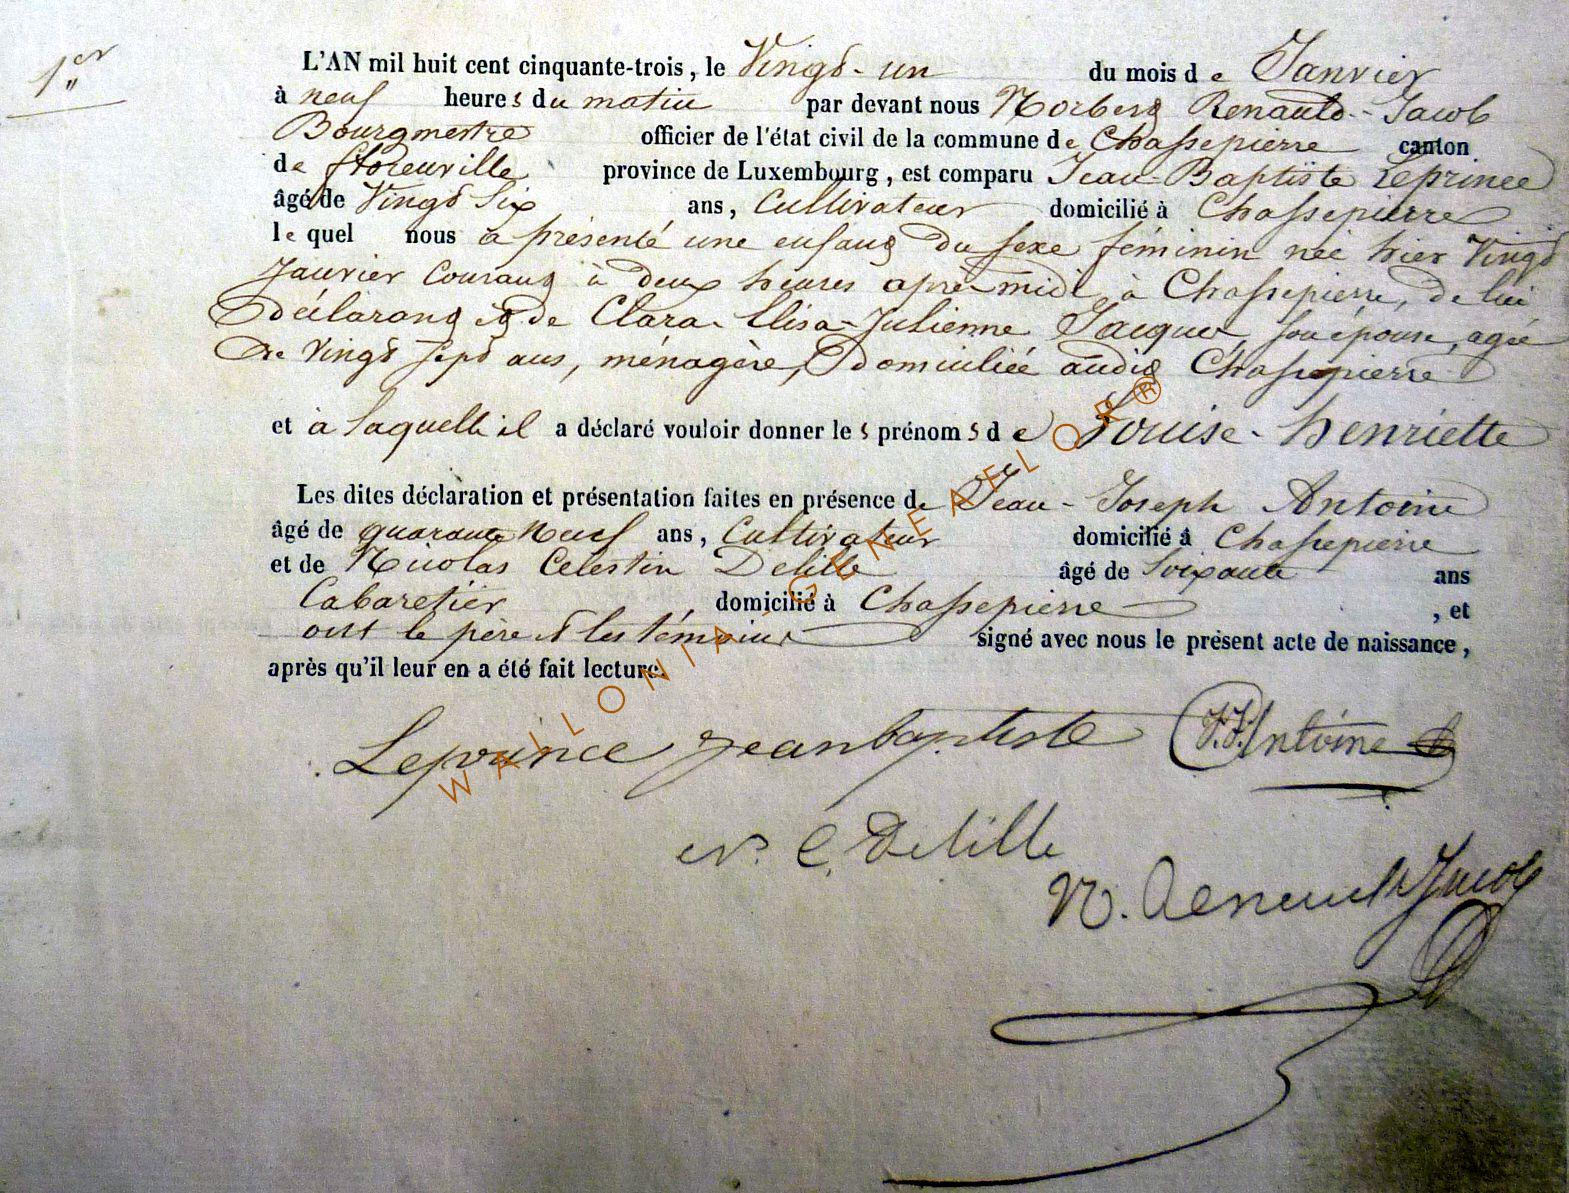 1er
L'AN mil huit cent cinquante-trois, le Vingt-un du mois de Janvier
à neuf heures du matin par devant nous Norbert Renauld-Jacob
Bourgmestre officier de l'état civil de la commune de Chassepierre canton
de florenville province de Luxembourg, est comparu Jean-Baptiste Leprince
âgé de Vingt Six ans, Cultivateur domicilié à Chassepierre
le quel nous a présenté une enfant du sexe féminin née hier Vingt
Janvier Courant à deux heures après midi, à Chassepierre, de lui
déclarant et de Clara-Elisa-Julienne Jacques, son épouse, agée
de Vingt sept ans, ménagère, domiciliée audit Chassepierre
et à laquelle il a déclaré vouloir donner les prénoms de Louise-henriette
Les dites déclaration et présentation faites en présence de Jean-Joseph Antoine
âgé de quarante neuf ans, Cultivateur domicilié à Chassepierre
et de Nicolas Celestin Delille âgé de Soixante ans
Cabaretier domicilié à Chassepierre, et
ont le père & les témoins signé avec nous le présent acte de naissance,
après qu'il leur en a été fait lecture.
Leprince jean baptiste J.J. Antoine
N. C. Delille
N. Renauld Jacob
WALLONIA-GENEAFLOR®